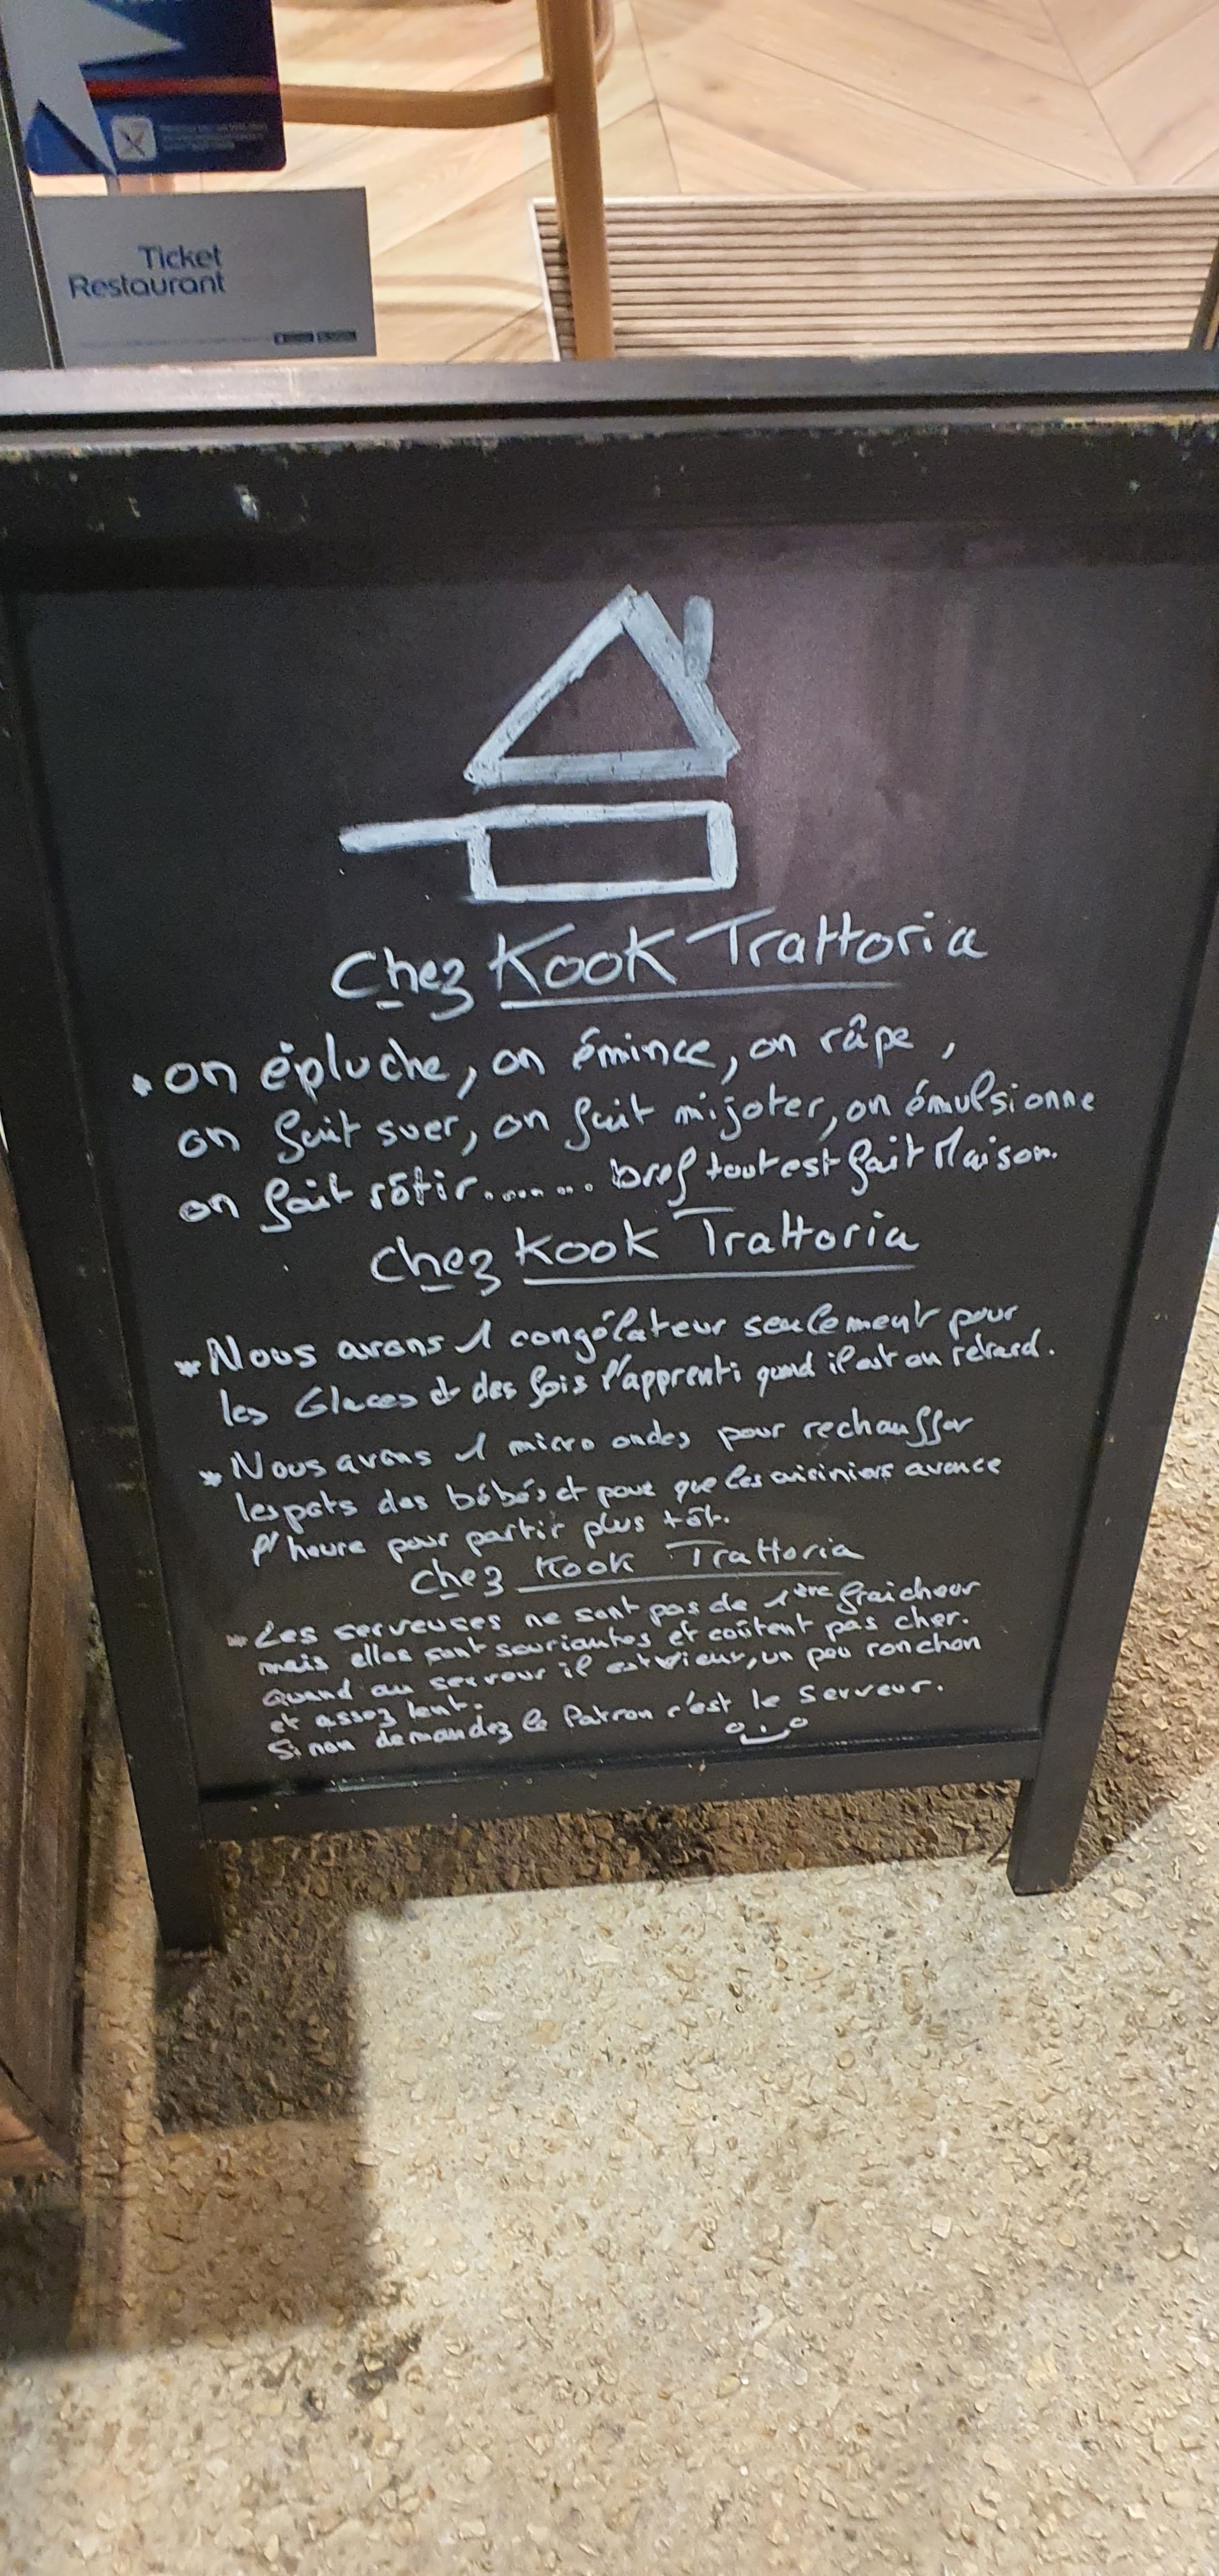 Ticket
Restaurant
Chez Kook Trattoria
* on épluche, on émince, on râpe,
on fait suer, on fait mijoter, on émulsionne
on fait rôtir........ bref tout est fait Maison.
chez Kook Trattoria
* Nous avons 1 congélateur seulement pour
les Glaces et des fois l'apprenti quand il est en retard.
* Nous avons 1 micro ondes pour rechauffer
les pots des bébés et pour que les cuisiniers avance
l'heure pour partir plus tôt.
chez Kook Trattoria
* Les serveuses ne sont pas de 1ère fraicheur
mais elles sont souriantes et coûtent pas cher.
Quand au serveur il est vieux, un peu ronchon
et assez lent.
Si non demandez le Patron c'est le serveur.